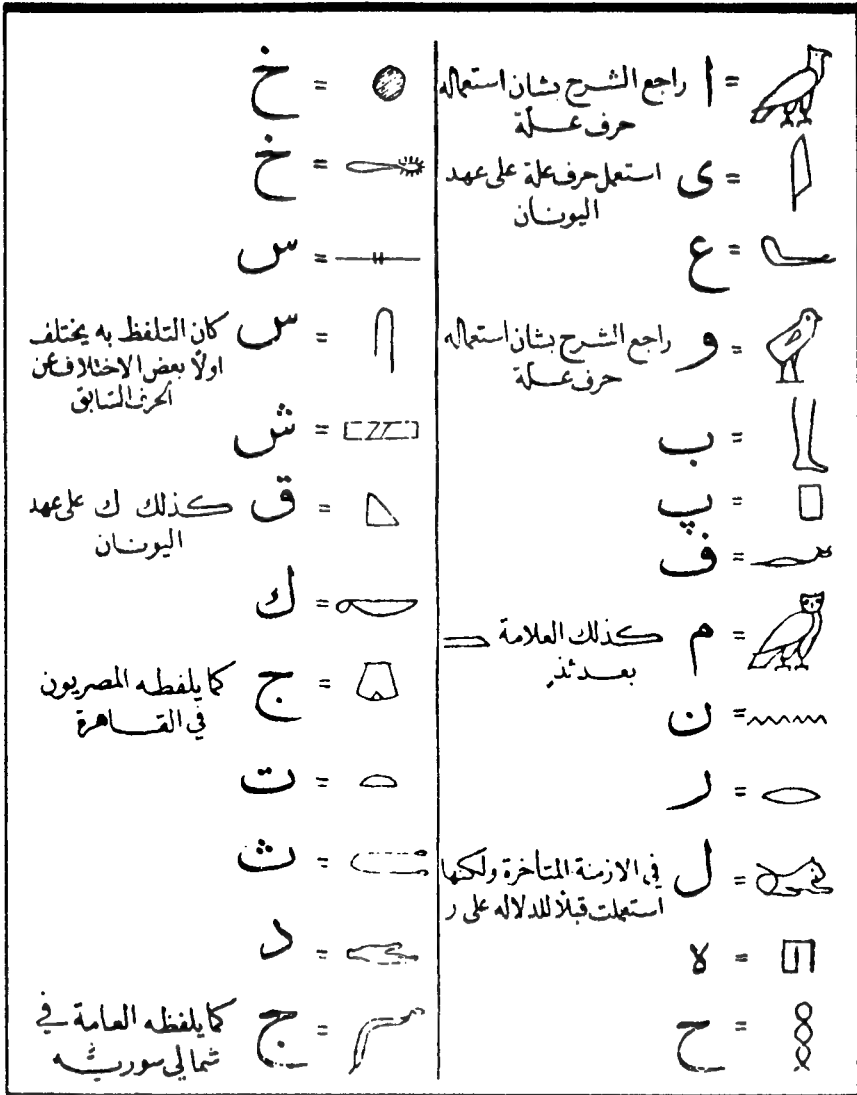 = ا راجع الشرح بشان استعماله
حرف علّة
= ى استعمل حرف علة على عهد
اليونان
= ع
= و راجع الشرح بشان استعماله
حرف علّة
= ب
= پ
= ف
= م كذلك العلامة
بعدئذٍ
= ن
= ر
= ل في الازمنة المتأخرة ولكنها
استعملت قبلًا للدلاله على ر
= ه
= ح
= خ
= خ
= س
= س كان التلفظ به يختلف
اولًا بعض الاختلاف عن
الحرف السّابق
= ش
= ق كذلك ك على عهد
اليونان
= ك
= ج كما يلفظه المصريون
في القاهرة
= ت
= ث
= د
= ج كما يلفظه العامة في
شمالي سوريّه